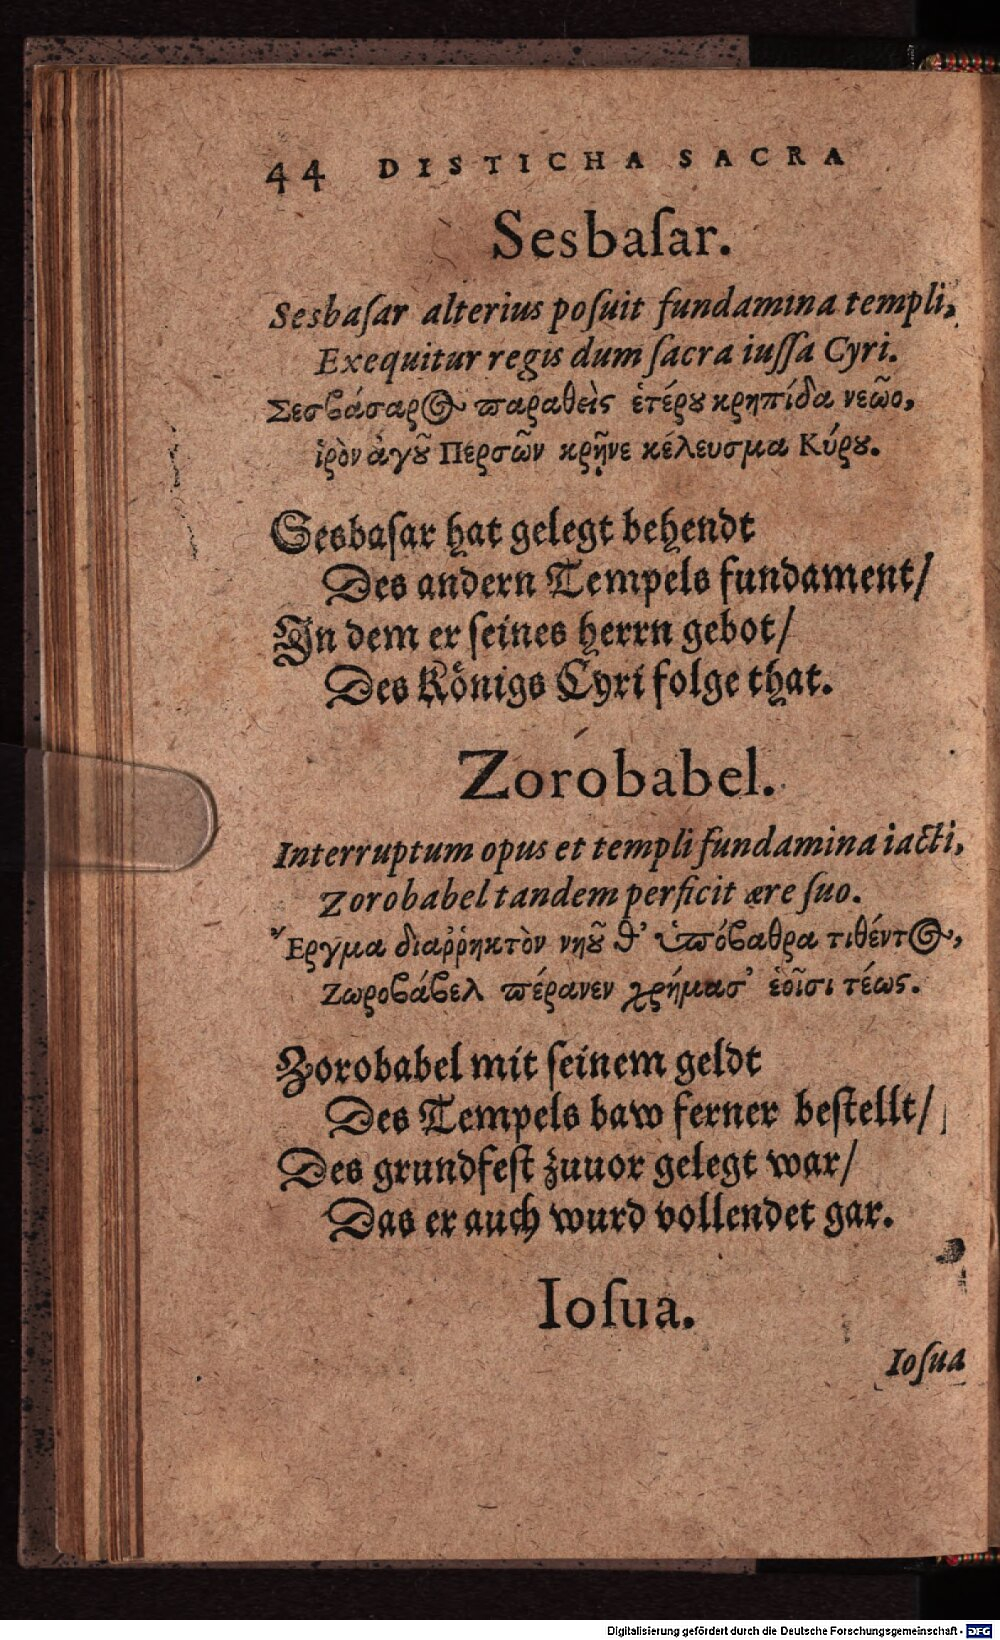 44 DISTICHA SACRA
Sesbaſar.
Sesbaſar alterius poſuit fundamina templi,
Exequitur regis dum ſacra iuſſa Cyri.
Σεσβάσαρος παραθεὶς ἑτέρου κρηπίδα νεῶο,
ἱρὸν ἀγοῦ Περσῶν κρῇνε κέλευσμα Κύρου.
Sesbaſar hat gelegt behendt
Des andern Tempels fundament/
In dem er ſeines herrn gebot/
Des Koͤnigs Cyri folge that.
Zorobabel.
Interruptum opus et templi fundamina iacti,
Zorobabel tandem perficit ære ſuo.
Ἔργμα διαῤῥηκτὸν νηοῦ θ’ ὑπόβαθρα τιθέντος,
Ζωροβάβελ πέρανεν χρήμασ’ ἑοῖσι τέως.
Zorobabel mit ſeinem geldt
Des Tempels baw ferner beſtellt/
Des grundfeſt zuuor gelegt war/
Das er auch wurd vollendet gar.
Ioſua.
Ioſua
Digitalisierung gefördert durch die Deutsche Forschungsgemeinschaft - DFG